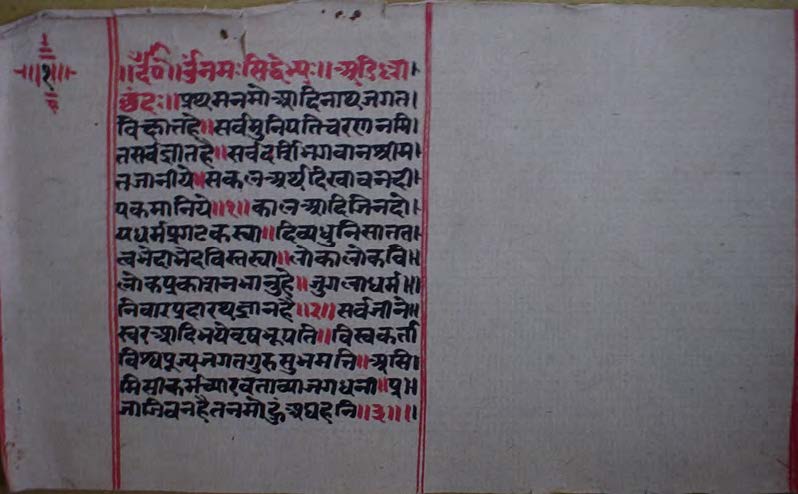 १
॥र्द०॥ ॐ नमः सिद्धेभ्यः॥ अडिल्ल।
छंदः॥ प्रथम नमो आदिनाथ जगत।
विख्यात है॥ सर्व मुनिपति चरण नमि।
त सर्वज्ञात है॥ सर्वदर्शि भगवान श्रीम।
त जानीये॥ सकल अर्थ दिखावन दी।
पक मानिये॥१॥ काल आदि जिनदे।
य धर्म प्रगट कस्या॥ दिव्य धुनि सात त।
त्व भेदाभेद विस्तस्या॥ लोकालोक वि॥
लोक प्रकाशन भानु है॥ जुगला धर्म॥
निवार पदारथ ज्ञान है॥२॥ सर्व जीने॥
स्वर आदि भये वृष भूपति॥ विस्व कर्ता
विश्व पूज्य जगत गुरु सुभमति॥ असि।
मिसी कर्म व्यारवताव्या जग धनी॥ पु॥
जा जिवन है त नमो हुं अघ हनि॥३॥।